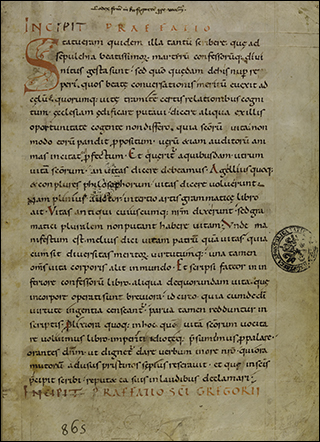 INCIPIT PRAEFATIO
Statueram quidem illa tantū scribere, quę ad
sepulchra beatissimorꝝ martirū confessorūq; divi
nitus gesta sunt. sed quō quędam de his nup rep
peri, quos beatę conversationis meritū euexit ad
cęlū, quorumq; vitę tramitē certis relationibus cogni
tum ęcclesiam ędificare putavi, dicere aliqua ex illis
oportunitate cogente non differo, quia scōrū vita non
modo eorū pandit ppositum, verū etiam auditorū ani
mas incitat ad pfectum. Et querit᷑ a quibusdam utrum
vita scōrum, an vitas dicere debeamus. A gellius quoq;
et conplures philosophorum vitas dicere voluerunt.
Nam plinius auctor in tertio artis grammaticę libro
ait. Vitas antiqui cuiuscumq; nrm̄ dixerunt. sed gra
matici pluralem non putant habere vitam. Unde ma
nifestum est melius dici vitam patrū quā vitas, quia
cum sit diversitas meritorꝝ virtutumq; una tamen
om̄s vita corporis alit in mundo. Et scripsi fateor in in
feriori confessorū libro aliqua de quorundam vita, quę
in corpore operati sunt breviora. idcirco quia cum de dī
virtute ingentia censeant᷑, parva tamen reddunt᷑ in
scriptis. Prolixiora quoq; in hoc, quę vitā scōrum vocita
re voluimus libro imperiti idioteq; p̄sumimus ppalare.
orantes dn̄m, ut dignet᷑ dare verbum in ore nr̄o qui ora
mutorū ad usus pristinos sępius reseravit.
INCIPIT PRAEFATIO SCI GREGORII
865